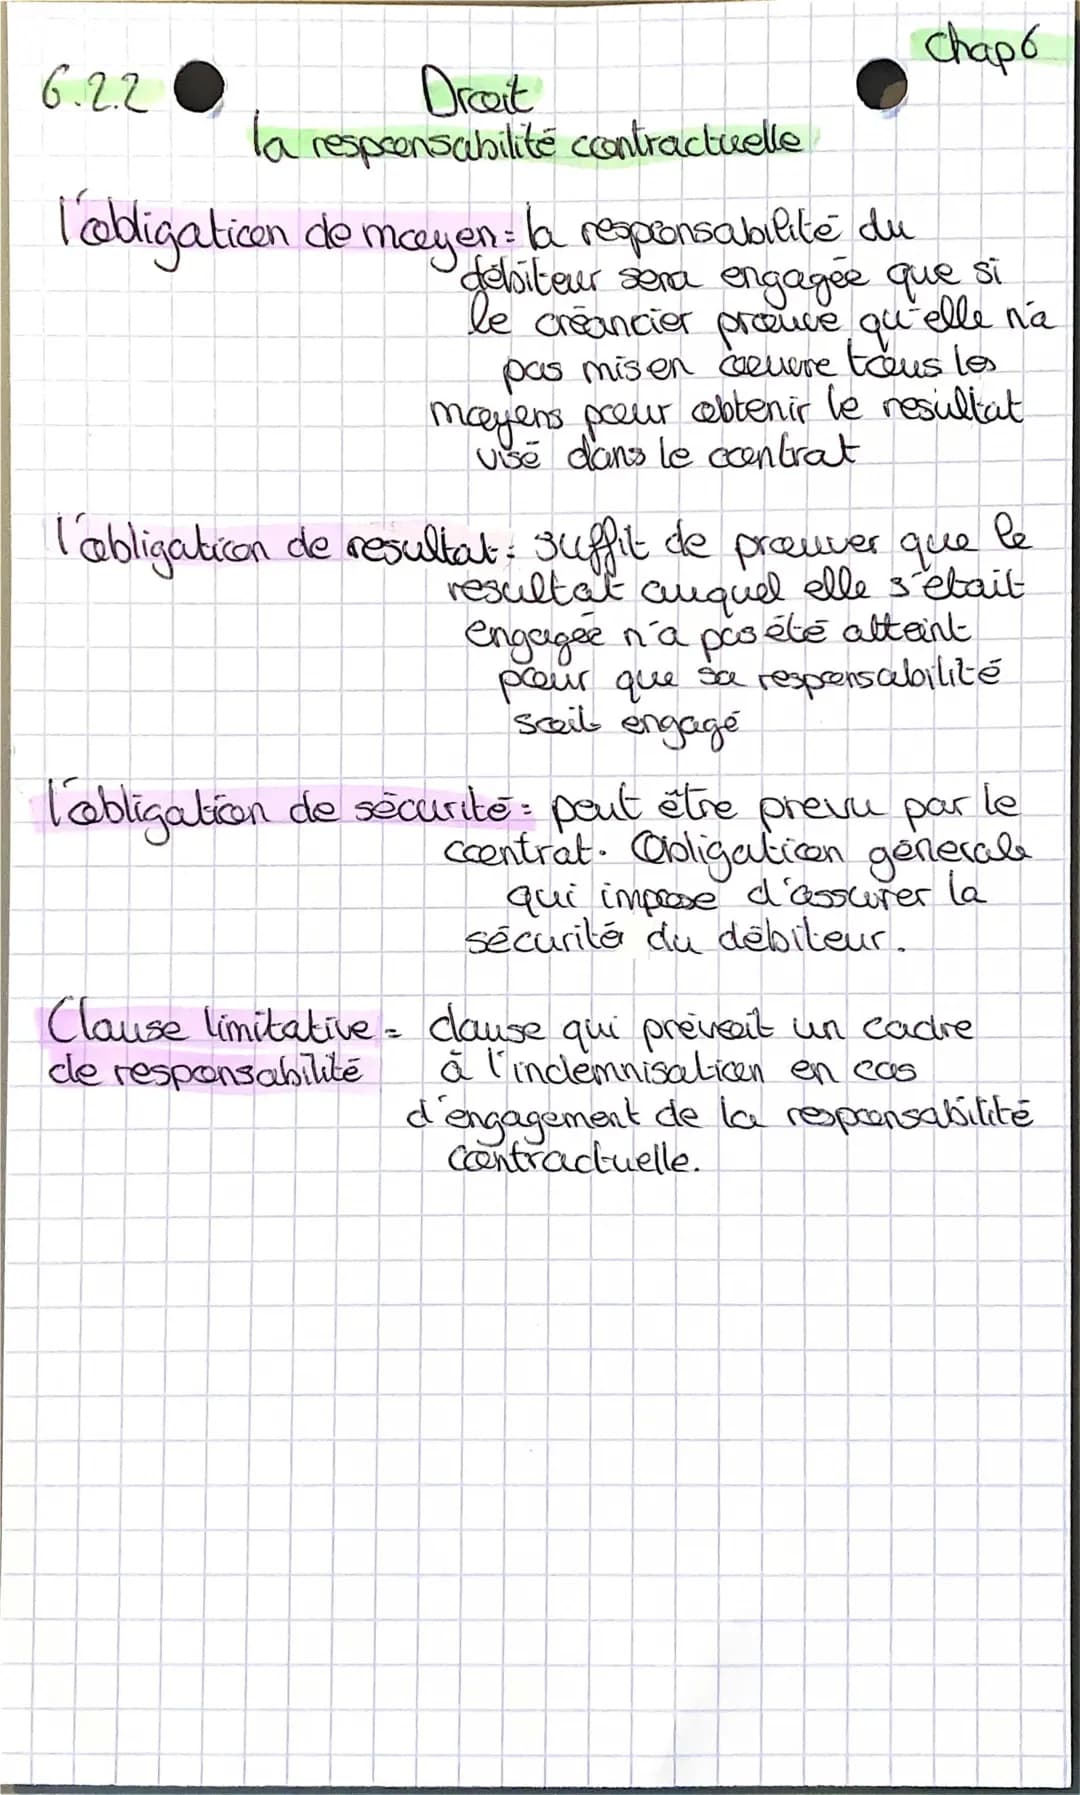 Chap 6
6.2.2 Droit
la responsabilité contractuelle
l'obligation de moyen = la responsabilité du
débiteur sera engagée que si
le créancier prouve qu'elle n'a
pas mis en oeuvre tous les
moyens pour obtenir le resultat
visé dans le contrat
l'obligation de resultat : suffit de prouver que le
resultat auquel elle s'était
engagée n'a pas été atteint
pour que sa responsabilité
soit engagé
l'obligation de sécurité = peut être prevu par le
contrat. Obligation génerale
qui impose d'assurer la
sécurité du débiteur.
Clause limitative = clause qui prévoit un cadre
de responsabilité à l'indemnisation en cas
d'engagement de la responsabilité
contractuelle.